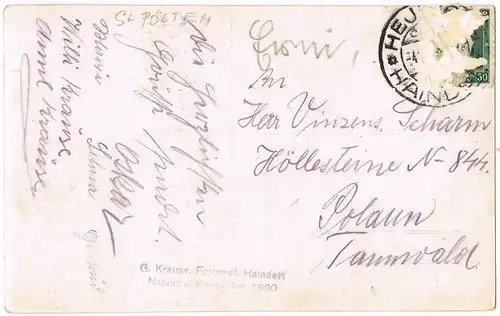 ST. PÖLTEN
Die herzlichsten
Grüße sendet
Oskar
Selma
Willi Krause
Anni Krause
Erwin,
HAIND
50
An
Herr Vinzens. Scharm
Höllesteine N- 844.
Polaun
Tannwald.
G. Krause, Fotograf. Haindorf
Nachdruck verboten 1930